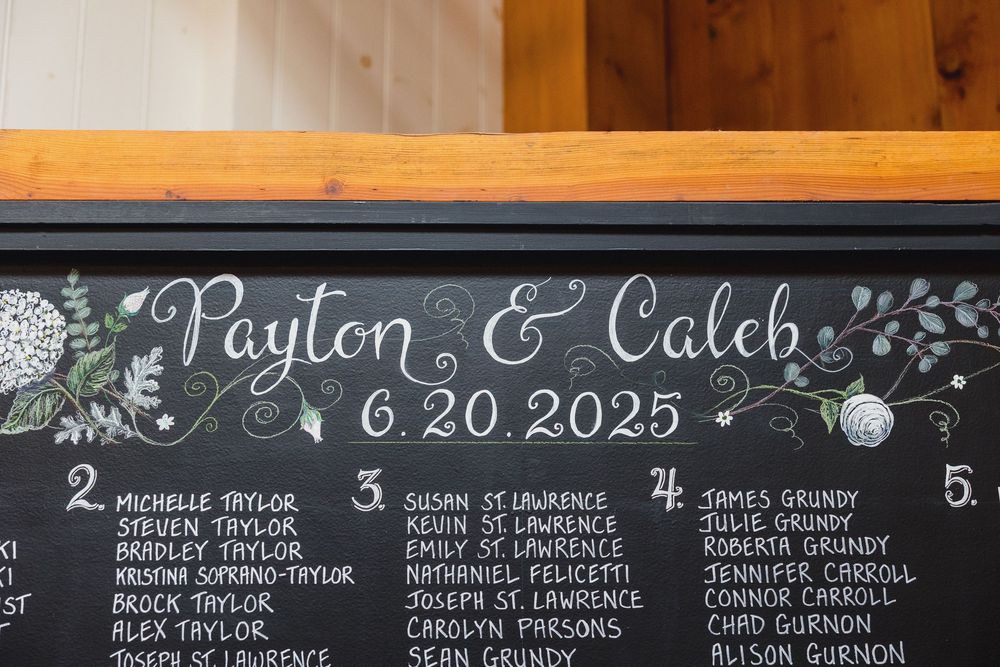 Payton & Caleb
6.20.2025
2.
MICHELLE TAYLOR
STEVEN TAYLOR
BRADLEY TAYLOR
KRISTINA SOPRANO-TAYLOR
BROCK TAYLOR
ALEX TAYLOR
JOSEPH ST. LAWRENCE
3.
SUSAN ST. LAWRENCE
KEVIN ST. LAWRENCE
EMILY ST. LAWRENCE
NATHANIEL FELICETTI
JOSEPH ST. LAWRENCE
CAROLYN PARSONS
SEAN GRUNDY
4.
JAMES GRUNDY
JULIE GRUNDY
ROBERTA GRUNDY
JENNIFER CARROLL
CONNOR CARROLL
CHAD GURNON
ALISON GURNON
5.